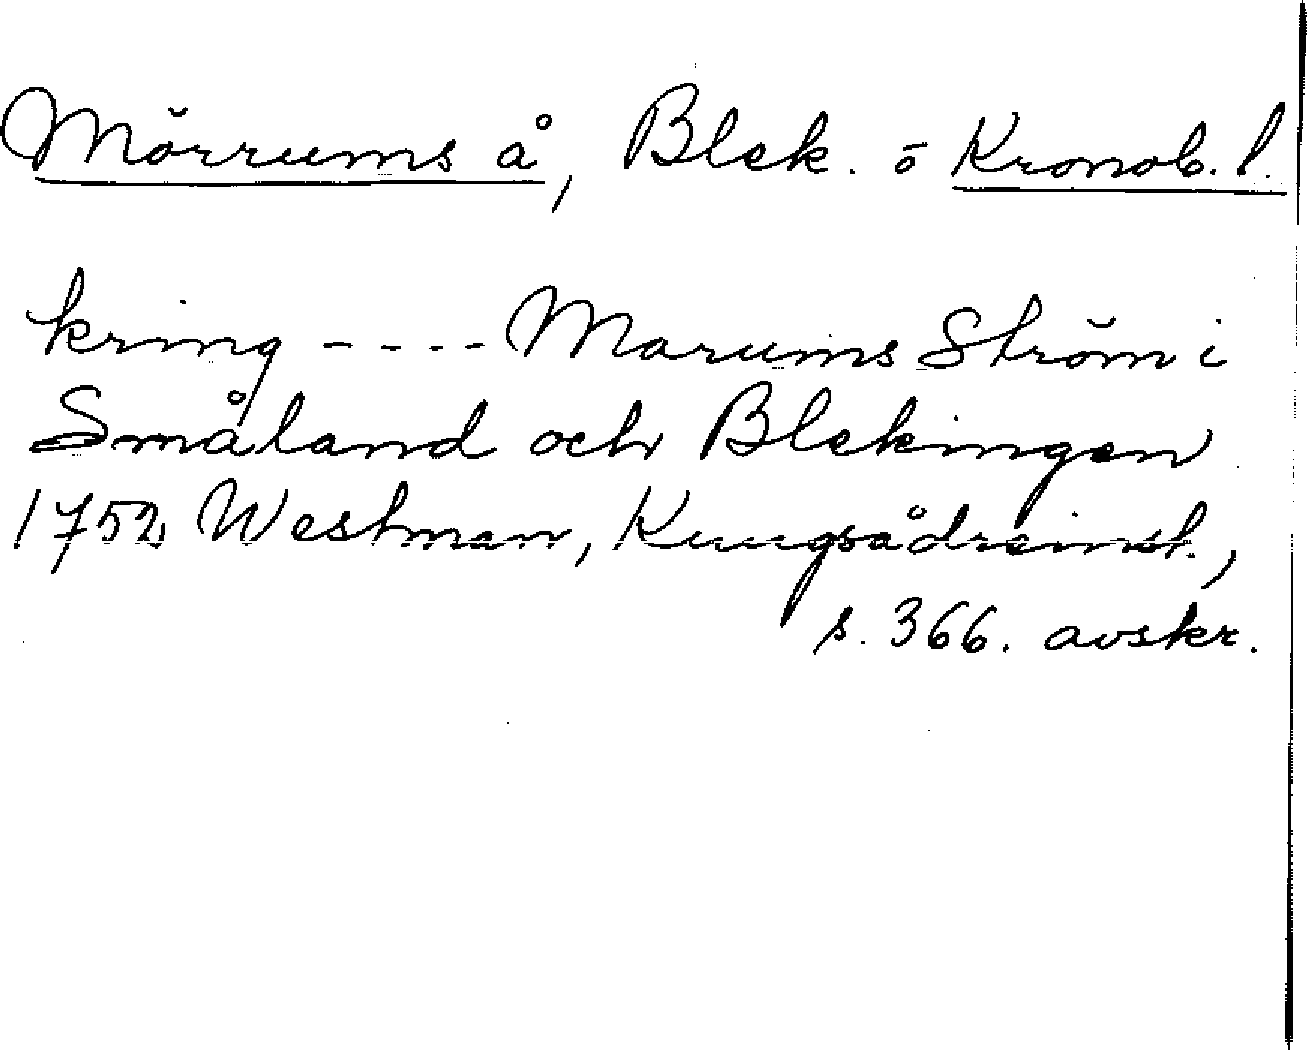 Mörrums å, Blek. o Kronob. l.
kring ---- Marums Ström i
Småland och Blekingen
1752 Westman, Kungsådreinst.,
s. 366. avskr.